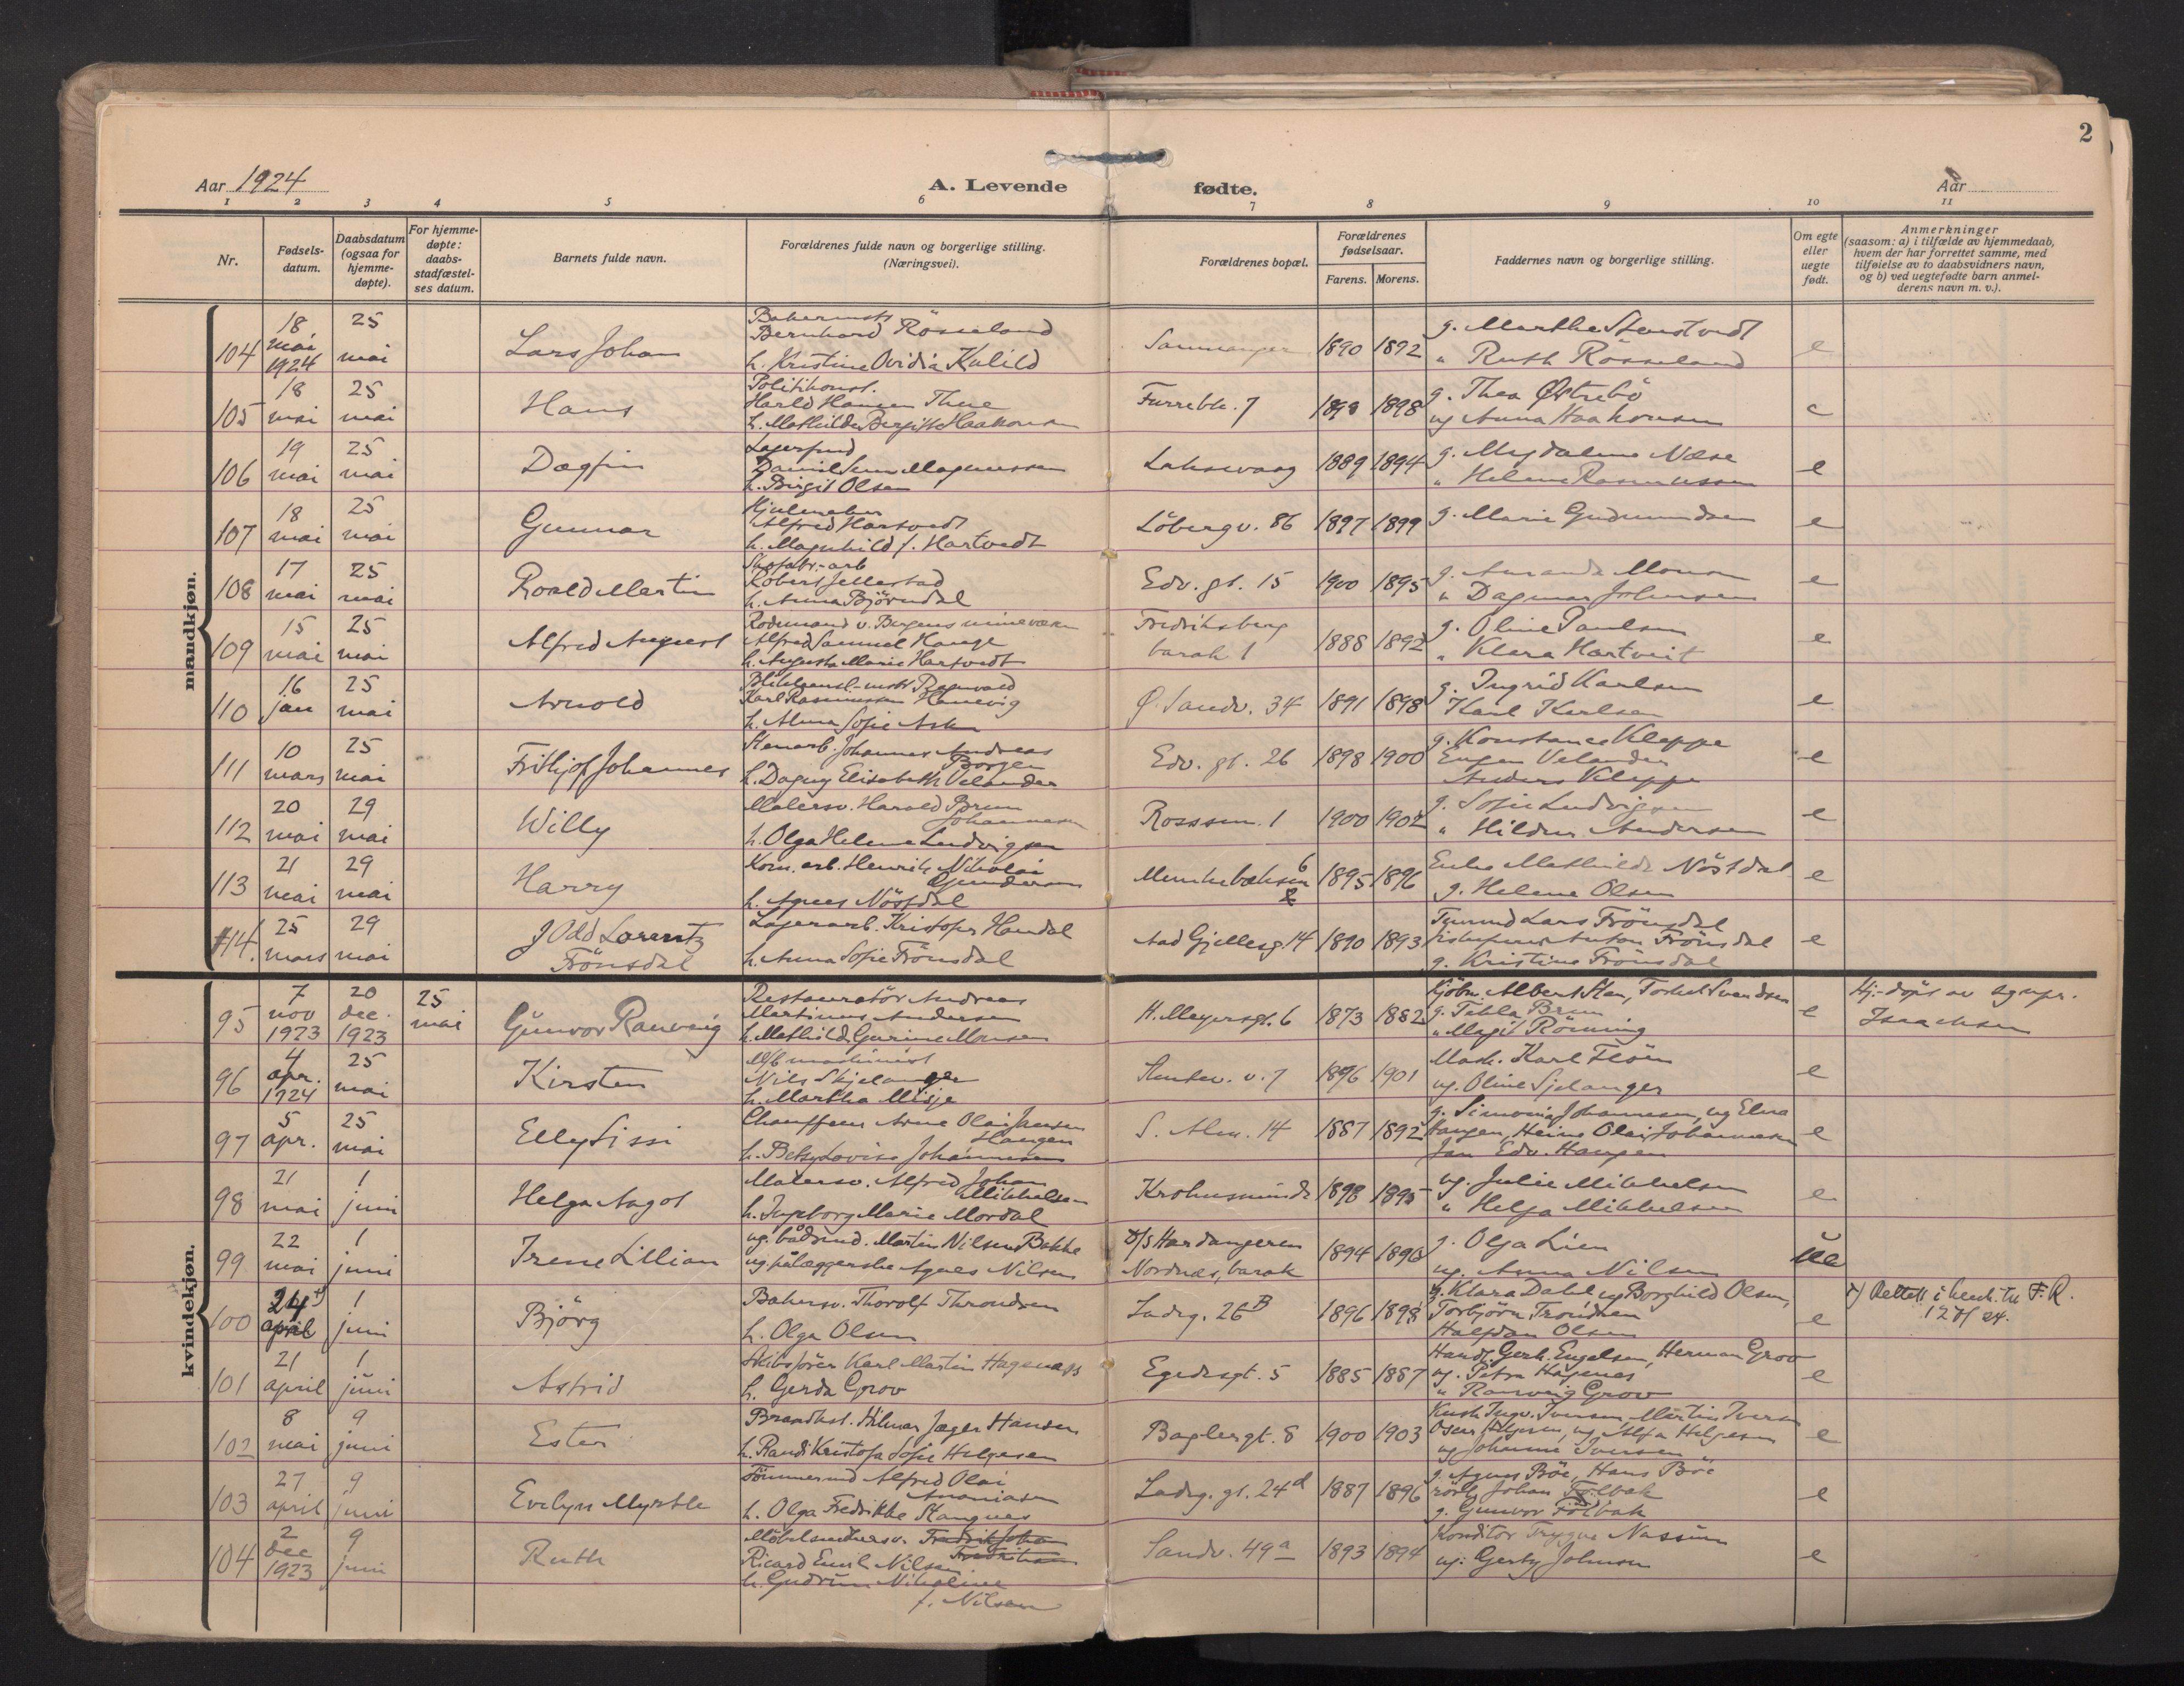 2
Aar 1924
A. Levende fødte.
Aar
1 2 3 4 5 6 7 8 9 10 11
Nr.
Fødsels-
datum.
Daabsdatum
(ogsaa for
hjemme-
døpte).
For hjemme-
døpte:
daabs-
stadfæstel-
ses datum.
Barnets fulde navn.
Forældrenes fulde navn og borgerlige stilling.
(Næringsvei).
Forældrenes bopæl.
Forældrenes
fødselsaar.
Farens. Morens.
Faddernes navn og borgerlige stilling.
Om egte
eller
uegte
født.
Anmerkninger
(saasom: a) i tilfælde av hjemmedaab,
hvem der har forrettet samme, med
tilføielse av to daabsvidners navn,
og b) ved uegtefødte barn anmel-
derens navn m. v.).
mandkjøn.
104 18 mai 1924 25 mai Lars Johan
Bernhard Rösseland
h. Kristine Ovidia Kulild
Samnanger 1890 1892
g. Marthe Stenstvedt
" Ruth Rösseland
e
105 18 mai 25 mai Hans
Politikonst.
Harld Hansen Thue
h. Mathilde Bergitte Haakonsen
Furrebk. 7 1898 1898
g. Thea Østrebö
ug Anna Haakonsen
e
106 19 mai 25 mai Dagfin
Magnussen
h. Birgit Olsen
Laksevaag 1889 1894
g. Magdalene Næse
" Helene Rasmussen
e
107 18 mai 25 mai Gunnar
Hjulmaker
Alfred Hartvedt
h. Magnhild f. Hartvedt
Löbergv. 86 1897 1899
g. Marie Gudmundsen
e
108 17 mai 25 mai Roald Martin
Skofabr.-arb
Robert Jellestad
h. Anna Björndal
Edv. gt. 15 1900 1895
g. Amanda Monsen
" Dagmar Johnsen
e
109 15 mai 25 mai Alfred August
Rodemand v. Bergens
Alfred Samuel Hauge
h. Augusta Marie Hartvedt
Fredriksberg
barak 1
1888 1892
g. Oline Paulsen
" Klara Hartveit
e
110 16 jan 25 mai Arnold
Karl Rasmussen Hanevig
h. Alma Sofie Ask
Ø. Sandv. 34 1891 1898
g. Ingrid Karlsen
Karl Karlsen
e
111 10 mars 25 mai Fritjof Johannes
Stenarb. Johannes Andreas
Borgen
h. Dagny Elisabeth Velander
Edv. gt. 26 1898 1900
g. Konstance Kleppe
Eugen Velander
Anders Kleppe
e
112 20 mai 29 mai Willy
Malersv. Harald Brun
Johannesen
h. Olga Helene Ludvigsen
Rosssm. 1 1900 1902
g. Sofie Ludvigsen
" Hildur Andersen
e
113 21 mai 29 mai Harry
Kom. arb. Henrik Nikolai
Gundersen
h. Agnes Nöstdal
Munkebæksm 6 1895 1896
Enke Mathilde Nöstdal
g. Helene Olsen
e
114. 25 mars 29 mai Odd Lorentz
Frönsdal
Lagerarb. Kristofer Handal
h. Anna Sofie Frönsdal
Aad Gjellesg 14 1890 1893
Lars Frönsdal
Anton Frönsdal
g. Kristine Frönsdal
e
kvindekjøn.
95 7 nov 1923 20 dec. 1923 25 mai Gunvor Ranveig
Restauratör Andreas
Martinus Andersen
h. Mathilde Gurine Monsen
H. Meyersgt. 6 1873 1882
Kjöbm. Albert Stan, Torkel Svendsen
g. Tekla Brun
" Magit Rönning
e
Hj.-döpt av sognpr.
Isaachsen
96 4 apr. 1924 25 mai Kirsten
M/b maskinist
Nils Skjelanger
h. Martha Misje
1896 1901
Mask. Karl Flöen
ug. Oline Sjelanger
e
97 5 apr. 25 mai Elly Sissi
Chauffeur Arne Olai Jansen
Haugen
h. Betsy Lovise Johannesen
S. Alm. 14 1887 1892
g. Simonine Johannesen, ug Elna
Haugen, Heine Olai Johannesen
Jan Edv. Haugen
e
98 21 mai 1 juni Helga Aagot
Malersv. Alfred Johan
Mikkelsen
h. Ingeborg Marie Mordal
Krohnsminde 1898 1895
ug. Julie Mikkelsen
" Helga Mikkelsen
e
99 22 mai 1 juni Irene Lillian
ug. bådsmd. Martin Nilsen Bakke
ug. pålæggerske Agnes Nilsen
D/S Hardangeren
Nordnæs, barak
1894 1896
g. Olga Lien
ug. Anna Nilsen
ue
100 24 april 1 juni Björg
Bakersv. Thorolf Throndsen
h. Olga Olsen
Ladeg. 26B 1896 1898
g. Klara Dahl ug Borghild Olsen,
Torbjörn Trondsen
Halfdan Olsen
e
x) Rettet i henh. til F. R.
24.
101 21 april 1 juni Astrid
Skibsförer Karl Martin Hagenæs
h. Gerda Grov
Egedesgt. 5 1885 1887
Handl. Gerh. Engelsen, Herman Grov
ug. Petra Hagenes
" Ranveig Grov
e
102 8 mai 9 juni Ester
Brandkst. Hilmar Jæger Hansen
h. Randi Kristofa Sofie Helgesen
Baglergt. 8 1900 1903
Kusk Ingv. Iversen Martin Iversen
Oscar Helgesen, ug Alfa Helgesen
ug Johanne Iversen
e
103 27 april 9 juni Evelyn Myrtle
Tömmermd Alfred Olai
Ananiasen
h. Olga Fredrikke Stangnes
Ladeg. gt. 24d 1887 1896
g. Agnes Böe, Hans Böe
rörl. Johan Fölbak
g. Gunvor Fölbak
e
104 2 dec 1923 9 juni Ruth
Möbelsnekkersv. Fredrik Johan
Fredriksen
Ricard Emil Nilsen
h. Gudrun Nikoline
f. Nilsen
Sandv. 49a 1893 1894
Konditor Trygve Nassum
ug. Gerty Johnsen
e